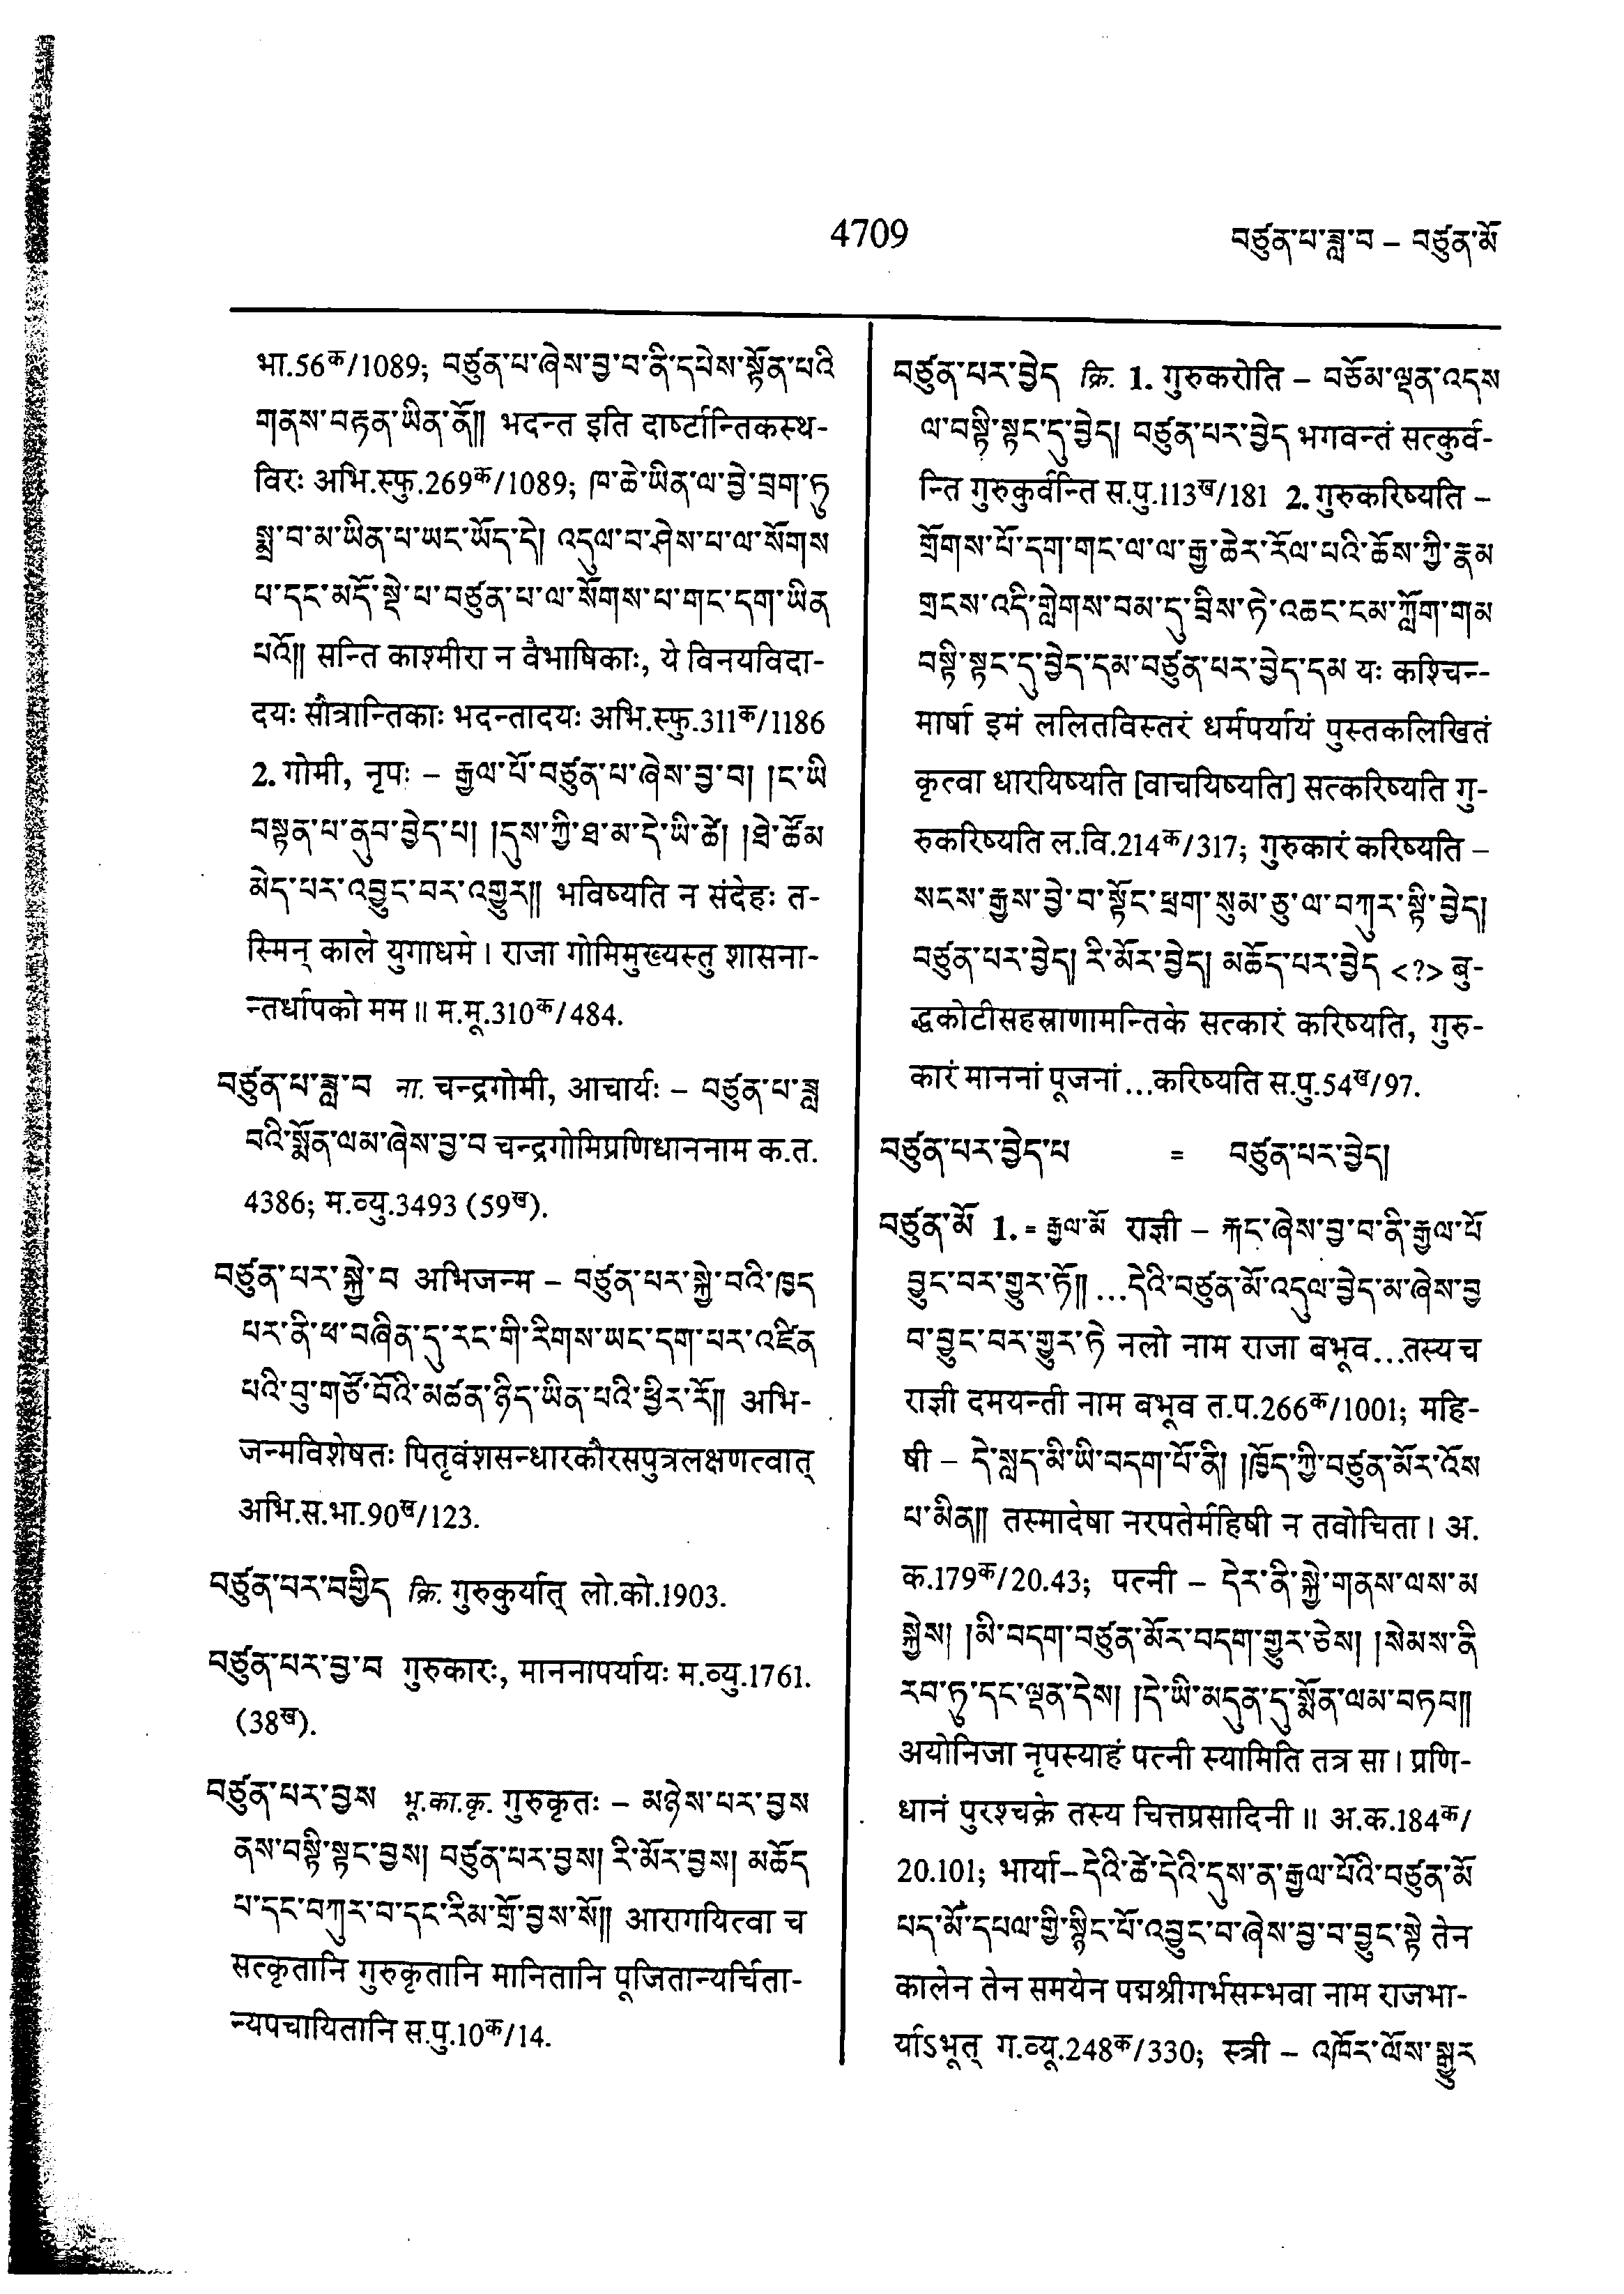 4709
བཙུན་པ་ཟླ་བ – བཙུན་མོ
भा.56क/1089; བཙུན་པ་ཞེས་བྱ་བ་ནི་དཔེས་སྟོན་པའི
གནས་བརྟན་ཡིན་ནོ།། भदन्त इति दार्ष्टान्तिकस्थ-
विरः अभि.स्फु.269क/1089; ཁ་ཆེ་ཡིན་ལ་བྱེ་བྲག་ཏུ
སྨྲ་བ་མ་ཡིན་པ་ཡང་ཡོད་དེ། འདུལ་བ་ཤེས་པ་ལ་སོགས
པ་དང་མདོ་སྡེ་པ་བཙུན་པ་ལ་སོགས་པ་གང་དག་ཡིན
པའོ།། सन्ति काश्मीरा न वैभाषिकाः, ये विनयविदा-
दयः सौत्रान्तिकाः भदन्तादयः अभि.स्फु.311क/1186
2. गोमी, नृपः – རྒྱལ་པོ་བཙུན་པ་ཞེས་བྱ་བ། །ང་ཡི
བསྟན་པ་ནུབ་བྱེད་པ། །དུས་ཀྱི་ཐ་མ་དེ་ཡི་ཚེ། །ཐེ་ཚོམ
མེད་པར་འབྱུང་བར་འགྱུར།། भविष्यति न संदेहः त-
स्मिन् काले युगाधमे । राजा गोमिमुख्यस्तु शासना-
न्तर्धापको मम ॥ म.मू.310क/484.
བཙུན་པ་ཟླ་བ ना. चन्द्रगोमी, आचार्यः – བཙུན་པ་ཟླ
བའི་སྨོན་ལམ་ཞེས་བྱ་བ चन्द्रगोमिप्रणिधाननाम क.त.
4386; म.व्यु.3493 (59ख).
བཙུན་པར་སྐྱེ་བ अभिजन्म – བཙུན་པར་སྐྱེ་བའི་ཁྱད
པར་ནི་ཕ་བཞིན་དུ་རང་གི་རིགས་ཡང་དག་པར་འཛིན
པའི་བུ་གཙོ་བོའི་མཚན་ཉིད་ཡིན་པའི་ཕྱིར་རོ།། अभि-
जन्मविशेषतः पितृवंशसन्धारकौरसपुत्रलक्षणत्वात्
अभि.स.भा.90ख/123.
བཙུན་པར་བགྱིད क्रि. गुरुकुर्यात् लो.को.1903.
བཙུན་པར་བྱ་བ गुरुकारः, माननापर्यायः म.व्यु.1761.
(38ख).
བཙུན་པར་བྱས भू.का.कृ. गुरुकृतः – མཉེས་པར་བྱས
ནས་བསྟི་སྟང་བྱས། བཙུན་པར་བྱས། རི་མོར་བྱས། མཆོད
པ་དང་བཀུར་བ་དང་རིམ་གྲོ་བྱས་སོ།། आरागयित्वा च
सत्कृतानि गुरुकृतानि मानितानि पूजितान्यर्चिता-
न्यपचायितानि स.पु.10क/14.
བཙུན་པར་བྱེད क्रि. 1. गुरुकरोति – བཅོམ་ལྡན་འདས
ལ་བསྟི་སྟང་དུ་བྱེད། བཙུན་པར་བྱེད भगवन्तं सत्कुर्व-
न्ति गुरुकुर्वन्ति स.पु.113ख/181 2. गुरुकरिष्यति –
གྲོགས་པོ་དག་གང་ལ་ལ་རྒྱ་ཆེར་རོལ་པའི་ཆོས་ཀྱི་རྣམ
གྲངས་འདི་གླེགས་བམ་དུ་བྲིས་ཏེ་འཆང་ངམ་ཀློག་གམ
བསྟི་སྟང་དུ་བྱེད་དམ་བཙུན་པར་བྱེད་དམ यः कश्चिन्-
मार्षा इमं ललितविस्तरं धर्मपर्यायं पुस्तकलिखितं
कृत्वा धारयिष्यति [वाचयिष्यति] सत्करिष्यति गु-
रुकरिष्यति ल.वि.214क/317; गुरुकारं करिष्यति –
སངས་རྒྱས་བྱེ་བ་སྟོང་ཕྲག་སུམ་ཅུ་ལ་བཀུར་སྟི་བྱེད།
བཙུན་པར་བྱེད། རི་མོར་བྱེད། མཆོད་པར་བྱེད <?> बु-
द्धकोटीसहस्राणामन्तिके सत्कारं करिष्यति, गुरु-
कारं माननां पूजनां ...करिष्यति स.पु.54ख/97.
བཙུན་པར་བྱེད་པ = བཙུན་པར་བྱེད།
བཙུན་མོ 1. = རྒྱལ་མོ राज्ञी – རྐང་ཞེས་བྱ་བ་ནི་རྒྱལ་པོ
བྱུང་བར་གྱུར་ཏོ།། ...དེའི་བཙུན་མོ་འདུལ་བྱེད་མ་ཞེས་བྱ
བ་བྱུང་བར་གྱུར་ཏེ नलो नाम राजा बभूव...तस्य च
राज्ञी दमयन्ती नाम बभूव त.प.266क/1001; महि-
षी – དེ་སླད་མི་ཡི་བདག་པོ་ནི། །ཁྱོད་ཀྱི་བཙུན་མོར་འོས
པ་མིན།། तस्मादेषा नरपतेर्महिषी न तवोचिता । अ.
क.179क/20.43; पत्नी – དེར་ནི་སྐྱེ་གནས་ལས་མ
སྐྱེས། །མི་བདག་བཙུན་མོར་བདག་གྱུར་ཅེས། །སེམས་ནི
རབ་ཏུ་དང་ལྡན་དེས། །དེ་ཡི་མདུན་དུ་སྨོན་ལམ་བཏབ།།
अयोनिजा नृपस्याहं पत्नी स्यामिति तत्र सा । प्रणि-
धानं पुरश्चक्रे तस्य चित्तप्रसादिनी ॥ अ.क.184क/
20.101; भार्या–དེའི་ཚེ་དེའི་དུས་ན་རྒྱལ་པོའི་བཙུན་མོ
པད་མོ་དཔལ་གྱི་སྙིང་པོ་འབྱུང་བ་ཞེས་བྱ་བ་བྱུང་སྟེ तेन
कालेन तेन समयेन पद्मश्रीगर्भसम्भवा नाम राजभा-
र्याऽभूत् ग.व्यू.248क/330; स्त्री – འཁོར་ལོས་སྒྱུར